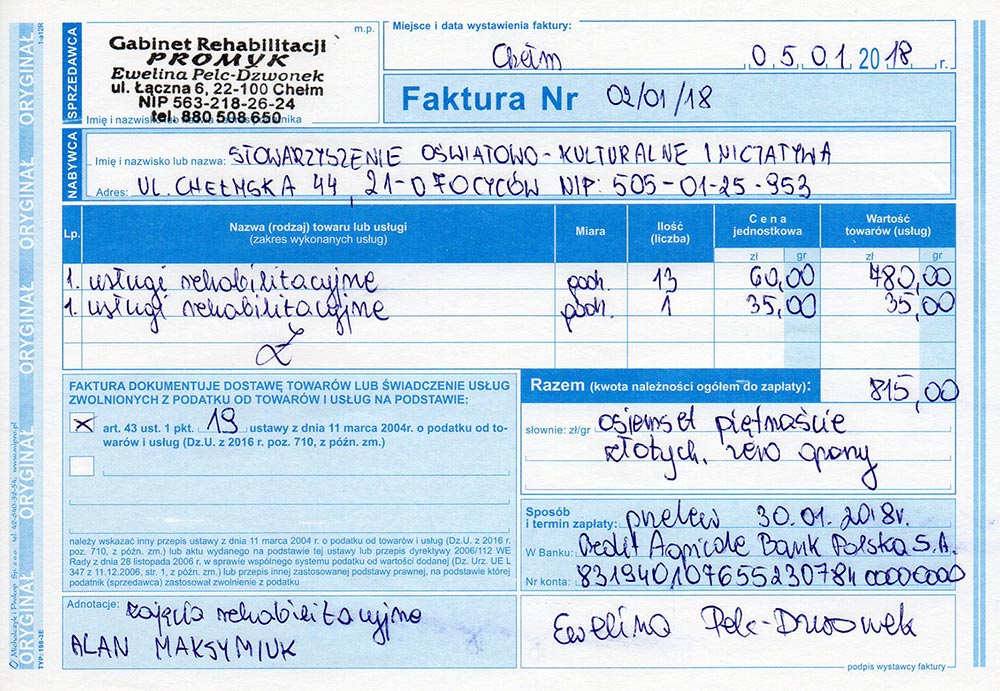 ORYGINAŁ ORYGINAŁ ORYGINAŁ ORYGINAŁ ORYGINAŁ
1-a12R
SPRZEDAWCA
m.p.
Gabinet Rehabilitacji
PROMYK
Ewelina Pelc-Dzwonek
ul. Łączna 6, 22-100 Chełm
NIP 563-218-26-24
tel. 880 508 650
Imię i nazwisko lub nazwa
Miejsce i data wystawienia faktury:
Chełm 05.01.2018 r.
Faktura Nr 02/01/18
NABYWCA
Imię i nazwisko lub nazwa: STOWARZYSZENIE OŚWIATOWO-KULTURALNE INICJATYWA
Adres: UL. CHEŁMSKA 44, 21-070 CYCÓW NIP: 505-01-25-953
Lp. Nazwa (rodzaj) towaru lub usługi Miara Ilość Cena Wartość
(zakres wykonanych usług) (liczba) jednostkowa towarów (usług)
zł gr zł gr
1. usługi rehabilitacyjne godz. 13 60,00 780,00
1. usługi rehabilitacyjne godz. 1 35,00 35,00
FAKTURA DOKUMENTUJE DOSTAWĘ TOWARÓW LUB ŚWIADCZENIE USŁUG
ZWOLNIONYCH Z PODATKU OD TOWARÓW I USŁUG NA PODSTAWIE:
X art. 43 ust. 1 pkt. 19 ustawy z dnia 11 marca 2004r. o podatku od to-
warów i usług (Dz.U. z 2016 r. poz. 710, z późn. zm.)
należy wskazać inny przepis ustawy z dnia 11 marca 2004 r. o podatku od towarów i usług (Dz.U. z 2016 r.
poz. 710, z późn. zm.) lub aktu wydanego na podstawie tej ustawy lub przepis dyrektywy 2006/112 WE
Rady z dnia 28 listopada 2006 r. w sprawie wspólnego systemu podatku od wartości dodanej (Dz. Urz. UE L
347 z 11.12.2006, str. 1, z późn. zm.) lub przepis innej zastosowanej podstawy prawnej, na podstawie której
podatnik (sprzedawca) zastosował zwolnienie z podatku
Razem (kwota należności ogółem do zapłaty): 815,00
słownie: zł/gr osiemset piętnaście
złotych, zero groszy
Sposób
i termin zapłaty: przelew 30.01.2018r.
W Banku: Credit Agricole Bank Polska S.A.
Nr konta: 83194010765523078400000000
Adnotacje: zajęcia rehabilitacyjne
ALAN MAKSYMIUK
Ewelina Pelc-Dzwonek
podpis wystawcy faktury
TYP: 198-3E